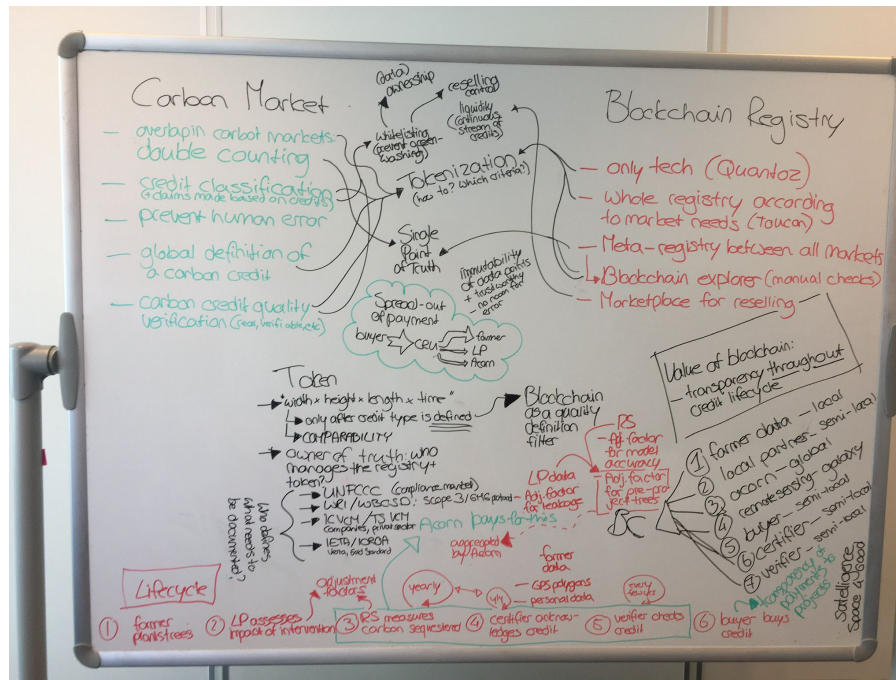 Carbon Market
– overlap in carbot markets:
double counting
– credit classification
(+ claims made based on credits)
– prevent human error
– global definition of
a carbon credit
– carbon credit quality
verification (real, verifiable, etc)
(data)
ownership
reselling
control
liquidity
(continuous
stream of
credits)
whitelisting
(prevent green-
washing)
Tokenization
(how to? Which criteria?)
Single
Point
of Truth
immutability
of data points
+ trustworthy
– no room for
error
Spread-out
of payment
buyer CRU farmer
LP
Acorn
Blockchain Registry
– only tech (Quantoz)
– Whole registry according
to market needs (Toucan)
– Meta-registry between all markets
Blockchain explorer (manual checks)
– Marketplace for reselling
Value of blockchain:
– transparency throughout
credit lifecycle
Token
"width × height × length × time"
only after credit type is defined
COMPARABILITY
owner of truth: who
manages the registry +
token?
UNFCCC (compliance market)
WRI / WBCSD: scope 3/GHG protocol
ICVCM / TSVCM
companies, private sector
IETA / ICROA
Verra, Gold Standard
Who defines
what needs to
be documented?
Blockchain
as a quality
definition
filter
RS
– Adj. factor
for model
accuracy
– Adj. factor
for pre-pro
ject trees
LP data
– Adj. factor
for leakage
BC
aggregated
by Acorn
Acorn pays for this
farmer
data
– GPS polygons
– personal data
① farmer data – local
② local partner – semi-local
③ acorn – global
④ remote sensing – galaxy
⑤ buyer – semi-local
⑥ certifier – semi-local
⑦ verifier – semi-local
transparency of
payments to
projects
Satelligence
Space 4 Good
Lifecycle
adjustment
factors
yearly
every
few yrs
① farmer
plants trees
② LP assesses
impact of intervention
③ RS measures
carbon sequestered
④ certifier acknow-
ledges credit
⑤ verifier checks
credit
⑥ buyer buys
credit